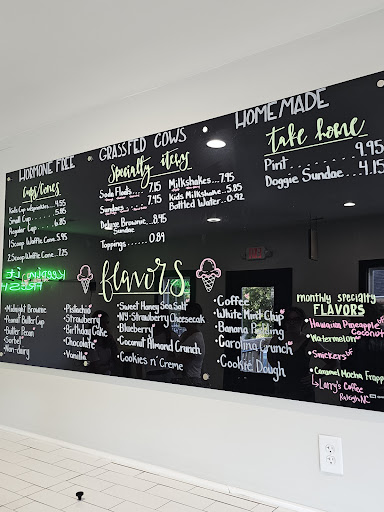 HORMONE FREE
GRASSFED COWS
HOMEMADE
Cups/Cones
Small Cup 5.05
Regular Cup 6.85
1 Scoop Waffle Cone 5.95
2 Scoop Waffle Cone 7.25
Specialty items
Soda Floats 7.15
Sundaes 7.45
Deluxe Brownie 8.95
Sundae
Toppings 0.89
Milkshakes 7.95
Kids Milkshake 5.85
Bottled Water 0.92
take home
Pint 9.95
Doggie Sundae 4.15
flavors
• Midnight Brownie
• Peanut Butter Cup
• Butter Pecan
• Sorbet
• Non-dairy
• Pistachio
• Strawberry
• Birthday Cake
• Chocolate
• Vanilla
• Sweet Honey Sea Salt
• NY Strawberry Cheesecake
• Blueberry
• Coconut Almond Crunch
• Cookies n' Creme
• Coffee
• White Mint Chip
• Banana Pudding
• Carolina Crunch
• Cookie Dough
monthly specialty
FLAVORS
Hawaiian Pineapple
Coconut
• Watermelon
• Snickers
• Caramel Mocha Frapp
Larry's Coffee
Raleigh NC
Keeping it
FRESH
EXIT